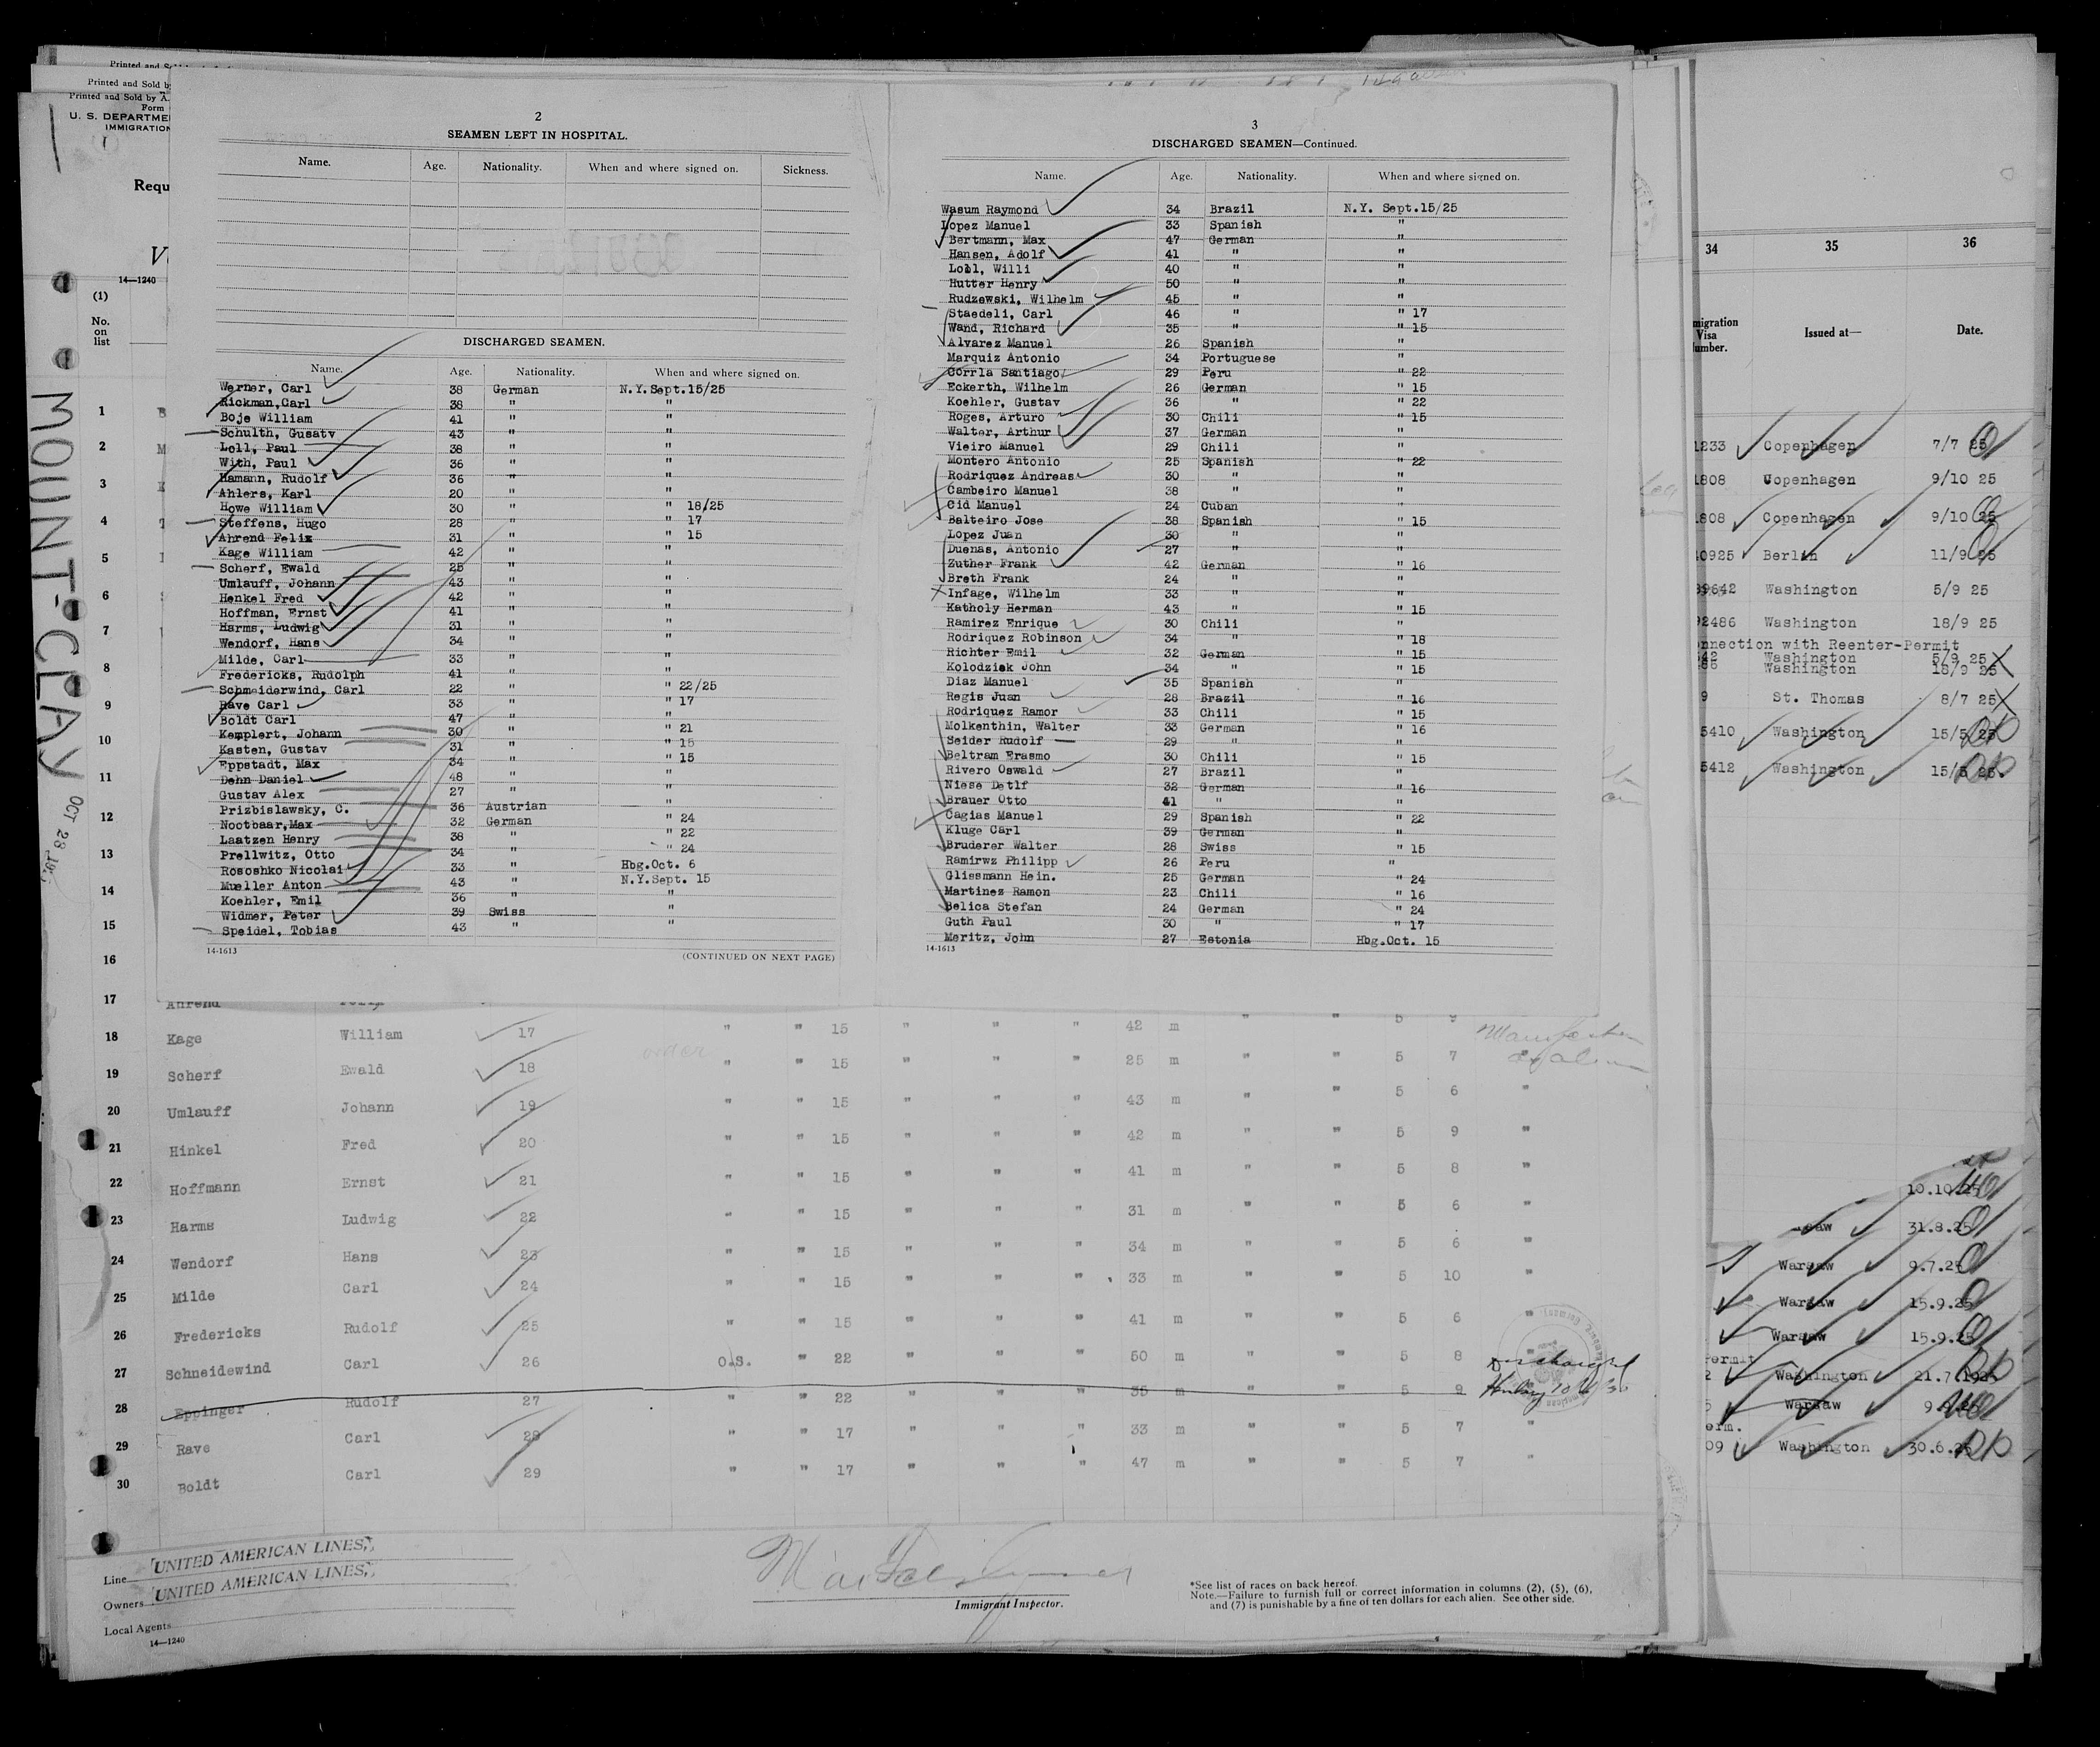 Printed and Sold b
Printed and Sold by A.
Form
U. S. DEPARTME
IMMIGRATION
Requ
14—1240
(1)
No.
on
list
MOUNT-CLAY OCT 28
2
SEAMEN LEFT IN HOSPITAL.
Name. Age. Nationality. When and where signed on. Sickness.
DISCHARGED SEAMEN.
Name. Age. Nationality. When and where signed on.
Werner, Carl 38 German N.Y.Sept.15/25
Rickman,Carl 38 " "
Boje William 41 " "
Schulth, Gusatv 43 " "
Loll, Paul 38 " "
With, Paul 36 " "
Hamann, Rudolf 36 " "
Ahlers, Karl 20 " "
Howe William 30 " " 18/25
Steffens, Hugo 28 " " 17
Ahrend Felix 31 " " 15
Kage William 42 " "
Scherf, Ewald 25 " "
Umlauff, Johann 43 " "
Henkel Fred 42 " "
Hoffman, Ernst 41 " "
Harms, Ludwig 31 " "
Wendorf, Hans 34 " "
Milde, Carl 33 " "
Fredericks, Rudolph 41 " "
Schmeiderwind, Carl 22 " " 22/25
Rave Carl 33 " " 17
Boldt Carl 47 " "
Kemplert, Johann 30 " " 21
Kasten, Gustav 31 " " 15
Eppstadt, Max 34 " " 15
Dehn Daniel 48 " "
Gustav Alex 27 " "
Prizbislawsky, C. 36 Austrian "
Nootbaar,Max 32 German " 24
Laatzen Henry 38 " " 22
Prellwitz, Otto 34 " " 24
Rososhko Nicolai 33 " Hbg.Oct. 6
Mueller Anton 43 " N.Y.Sept. 15
Koehler, Emil 36 " "
Widmer, Peter 39 Swiss "
Speidel, Tobias 43 " "
14-1613
(CONTINUED ON NEXT PAGE)
3
DISCHARGED SEAMEN—Continued.
Name. Age. Nationality. When and where signed on.
Wasum Raymond 34 Brazil N.Y. Sept.15/25
Lopez Manuel 33 Spanish "
Bertmann, Max 47 German "
Hansen, Adolf 41 " "
Loll, Willi 40 " "
Hutter Henry 50 " "
Rudzewski, Wilhelm 45 " "
Staedeli, Carl 46 " " 17
Wand, Richard 35 " " 15
Alvarez Manuel 26 Spanish "
Marquiz Antonio 34 Portuguese "
Corrla Santiago 29 Peru " 22
Eckerth, Wilhelm 26 German " 15
Koehler, Gustav 36 " " 22
Roges, Arturo 30 Chili " 15
Walter, Arthur 37 German "
Vieiro Manuel 29 Chili "
Montero Antonio 25 Spanish " 22
Rodriquez Andreas 30 " "
Cambeiro Manuel 38 " "
Cid Manuel 24 Cuban "
Balteiro Jose 38 Spanish " 15
Lopez Juan 30 " "
Duenas, Antonio 27 " "
Zuther Frank 42 German " 16
Breth Frank 24 " "
Infage, Wilhelm 33 " "
Katholy Herman 43 " " 15
Ramirez Enrique 30 Chili "
Rodriquez Robinson 34 " " 18
Richter Emil 32 German " 15
Kolodziek John 34 " " 15
Diaz Manuel 35 Spanish "
Regis Juan 28 Brazil " 16
Rodriquez Ramor 33 Chili " 15
Molkenthin, Walter 33 German " 16
Seider Rudolf 29 " "
Beltram Erasmo 30 Chili " 15
Rivero Oswald 27 Brazil "
Niese Detlf 32 German " 16
Brauer Otto 41 " "
Cagias Manuel 29 Spanish " 22
Kluge Carl 39 German "
Bruderer Walter 28 Swiss " 15
Ramirwz Philipp 26 Peru "
Glissmann Hein. 25 German " 24
Martinez Ramon 23 Chili " 16
Belica Stefan 24 German " 24
Guth Paul 30 " " 17
Meritz, John 27 Estonia Hbg.Oct. 15
14-1613
1
2
3
4
5
6
7
8
9
10
11
12
13
14
15
16
17 Ahrend
18 Kage William 17 " " 15 " " " 42 m " " 5 9
19 Scherf Ewald 18 " " 15 " " " 25 m " " 5 7
20 Umlauff Johann 19 " " 15 " " " 43 m " " 5 6 "
21 Hinkel Fred 20 " " 15 " " " 42 m " " 5 9 "
22 Hoffmann Ernst 21 " " 15 " " " 41 m " " 5 8 "
23 Harms Ludwig 22 " " 15 " " " 31 m " " 5 6 "
24 Wendorf Hans 23 " " 15 " " " 34 m " " 5 6 "
25 Milde Carl 24 " " 15 " " " 33 m " " 5 10 "
26 Fredericks Rudolf 25 " " 15 " " " 41 m " " 5 6 "
27 Schneidewind Carl 26 O.S. " 22 " " " 50 m " " 5 8
28 Eppinger Rudolf 27 " " 22 " " " 35 m " " 5 9
29 Rave Carl 28 " " 17 " " " 33 m " " 5 7 "
30 Boldt Carl 29 " " 17 " " " 47 m " " 5 7 "
Line UNITED AMERICAN LINES,
Owners UNITED AMERICAN LINES,
Local Agents
14—1240
Immigrant Inspector.
*See list of races on back hereof.
Note.—Failure to furnish full or correct information in columns (2), (5), (6),
and (7) is punishable by a fine of ten dollars for each alien. See other side.
34 35 36
migration
Visa
umber.
Issued at—
Date.
1233 Copenhagen 7/7 25
1808 Copenhagen 9/10 25
808 Copenhagen 9/10 25
10925 Berlin 11/9 25
39642 Washington 5/9 25
92486 Washington 18/9 25
nnection with Reenter-Permit
42 Washington 5/9 25
86 Washington 18/9 25
9 St. Thomas 8/7 25
5410 Washington 15/5 25
5412 Washington 15/5 25.
10.10.25
saw 31.8.25
Warsaw 9.7.25
Warsaw 15.9.25
Warsaw 15.9.25
ermit
2 Washington 21.7.1925
5 Warsaw
erm.
09 Washington 30.6.25